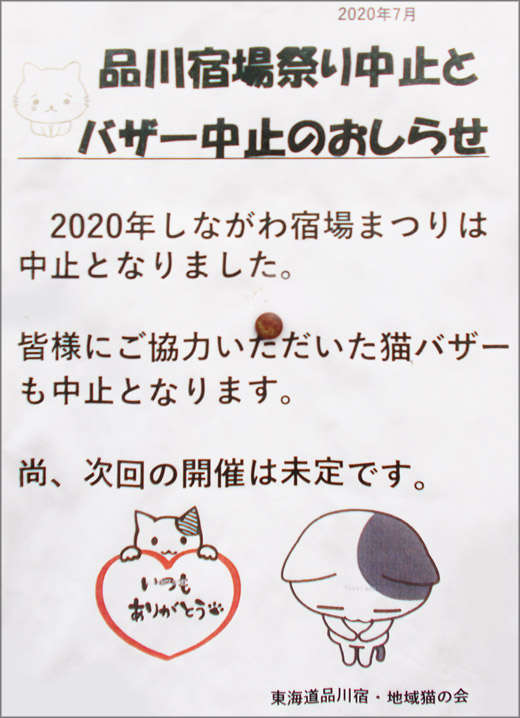 2020年7月
品川宿場祭り中止と
バザー中止のおしらせ
2020年しながわ宿場まつりは
中止となりました。
皆様にご協力いただいた猫バザー
も中止となります。
尚、次回の開催は未定です。
いつも
ありがとう
東海道品川宿・地域猫の会